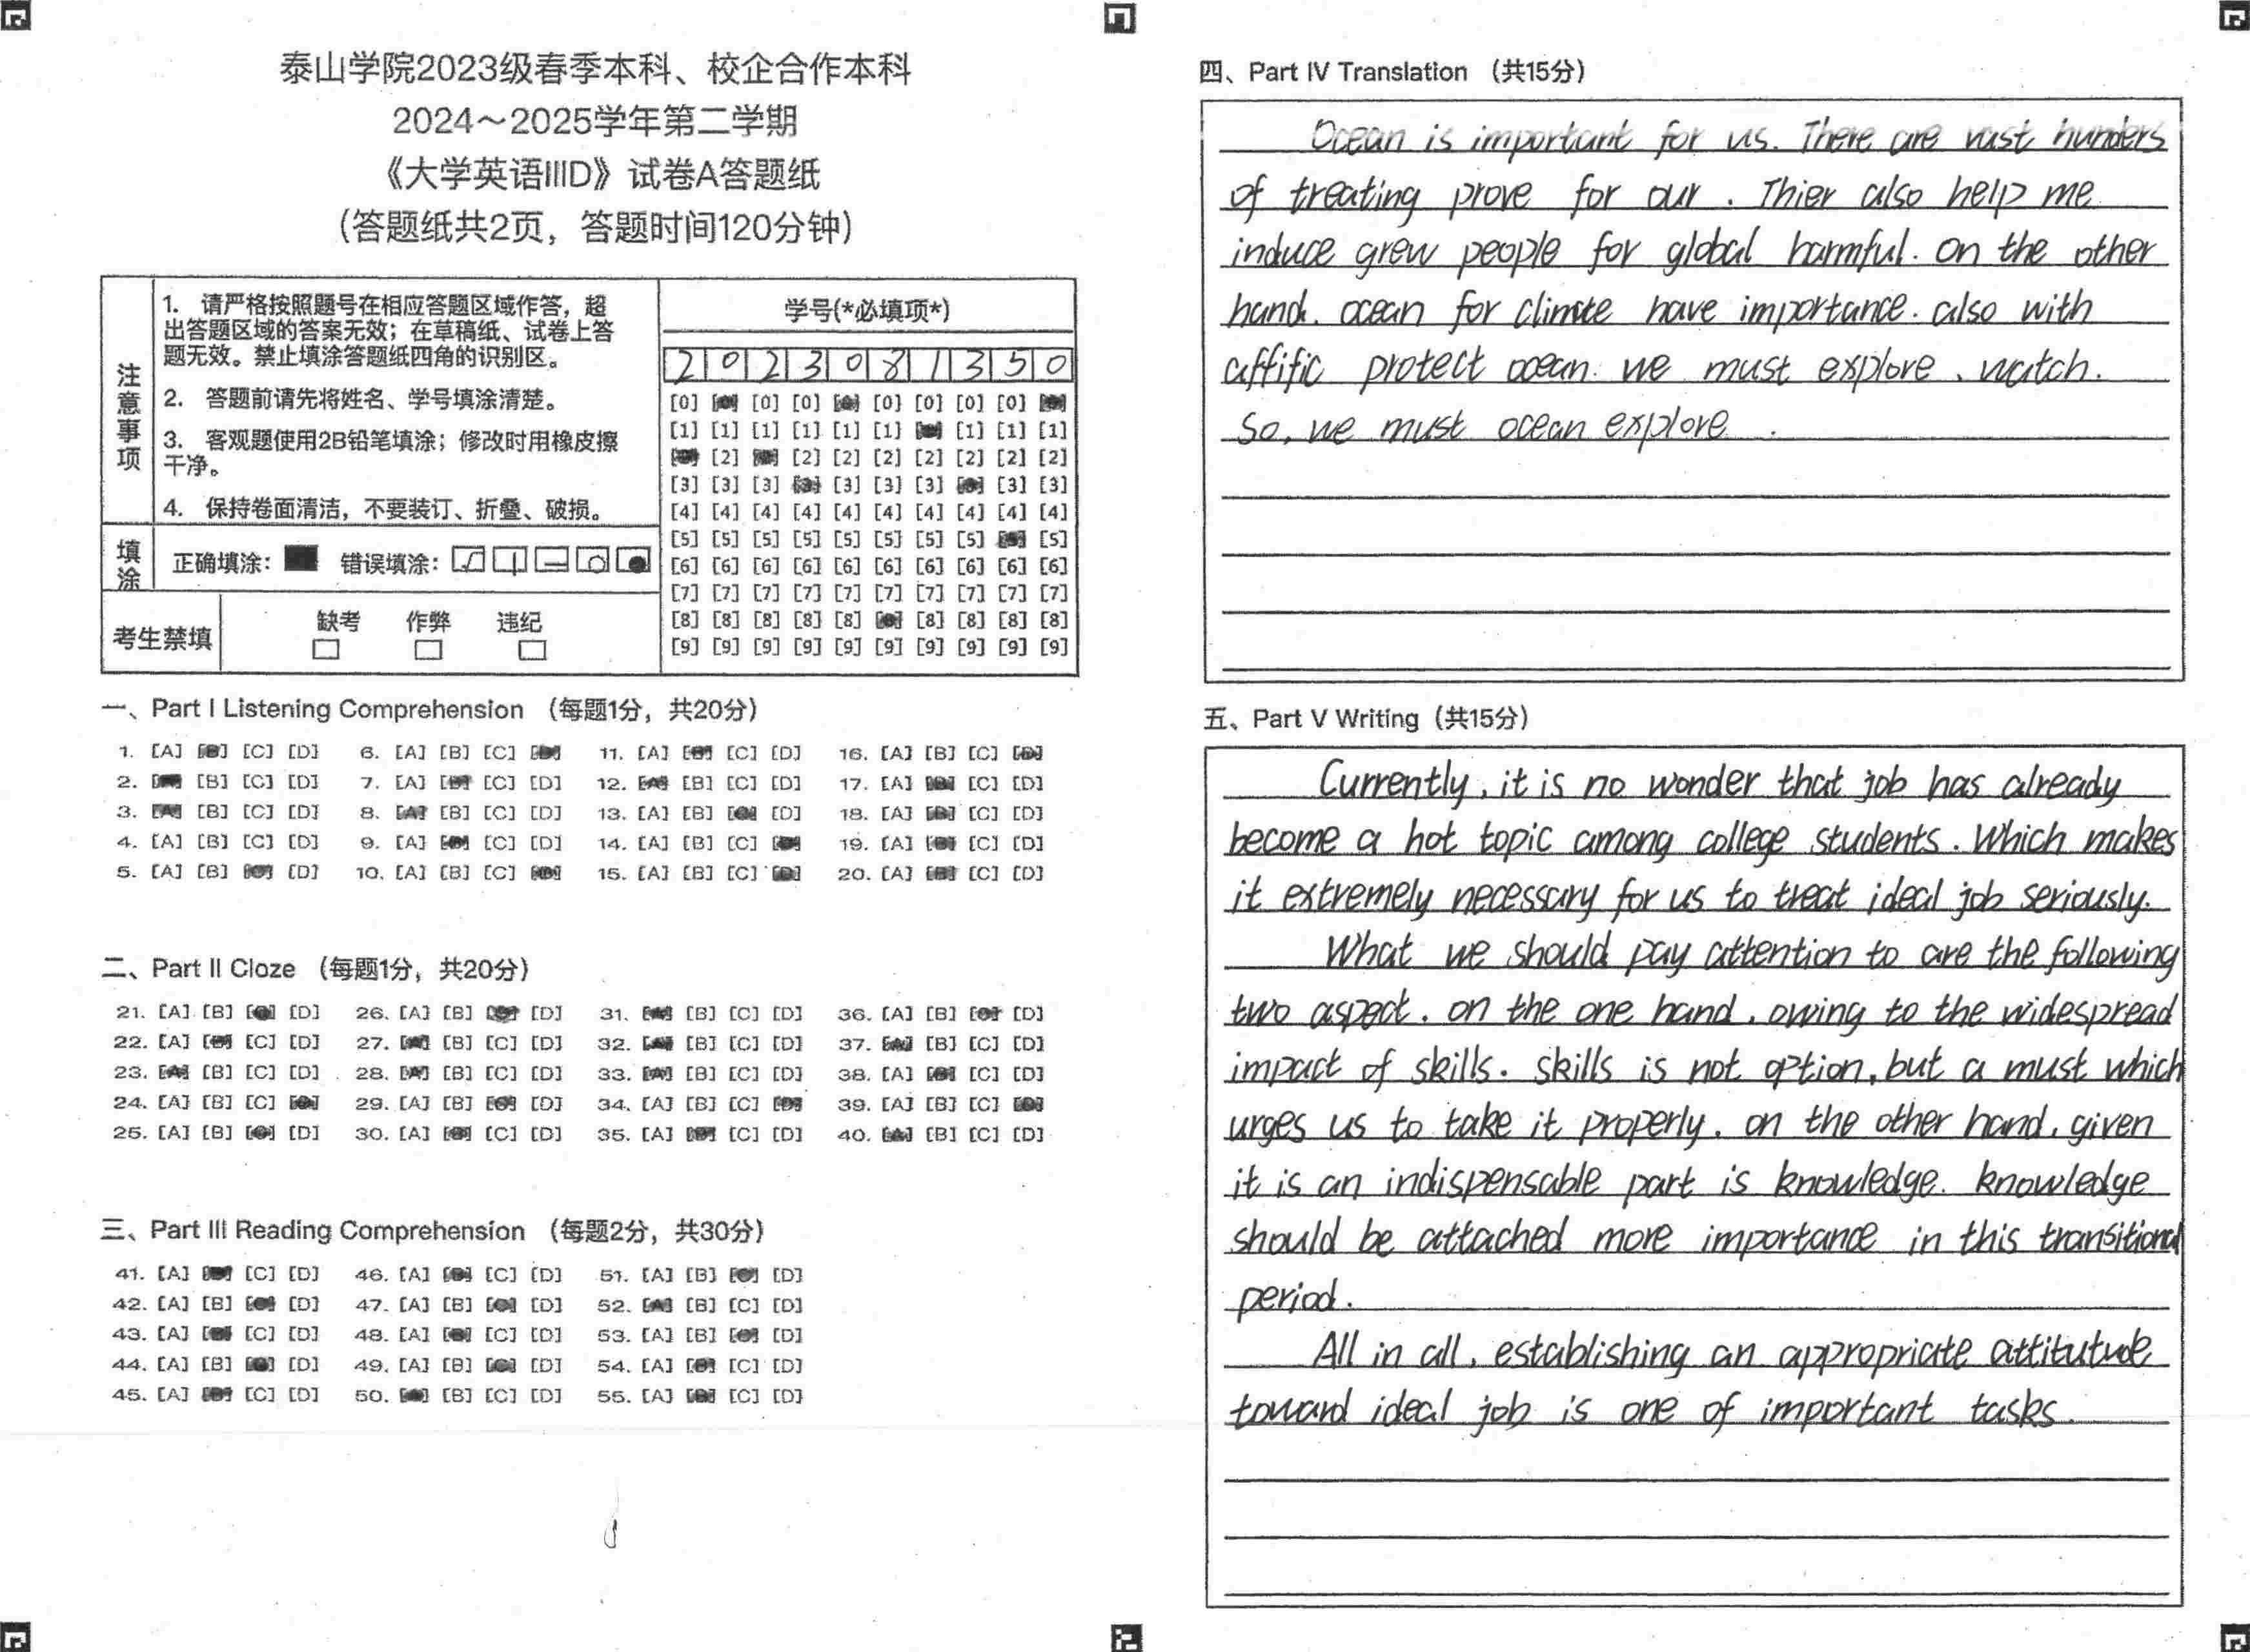 泰山学院2023级春季本科、校企合作本科
2024～2025学年第二学期
《大学英语IIID》试卷A答题纸
（答题纸共2页，答题时间120分钟）
注意事项
1. 请严格按照题号在相应答题区域作答，超
出答题区域的答案无效；在草稿纸、试卷上答
题无效。禁止填涂答题纸四角的识别区。
2. 答题前请先将姓名、学号填涂清楚。
3. 客观题使用2B铅笔填涂；修改时用橡皮擦
干净。
4. 保持卷面清洁，不要装订、折叠、破损。
填涂
正确填涂： 错误填涂：
考生禁填
缺考 作弊 违纪
学号(*必填项*)
2 0 2 3 0 8 1 3 5 0
[0] [0] [0] [0] [0] [0] [0]
[1] [1] [1] [1] [1] [1] [1] [1] [1]
[2] [2] [2] [2] [2] [2] [2] [2]
[3] [3] [3] [3] [3] [3] [3] [3]
[4] [4] [4] [4] [4] [4] [4] [4] [4] [4]
[5] [5] [5] [5] [5] [5] [5] [5] [5]
[6] [6] [6] [6] [6] [6] [6] [6] [6] [6]
[7] [7] [7] [7] [7] [7] [7] [7] [7] [7]
[8] [8] [8] [8] [8] [8] [8] [8] [8]
[9] [9] [9] [9] [9] [9] [9] [9] [9] [9]
一、Part I Listening Comprehension （每题1分，共20分）
1. [A] [C] [D] 6. [A] [B] [C] 11. [A] [C] [D] 16. [A] [B] [C]
2. [B] [C] [D] 7. [A] [C] [D] 12. [B] [C] [D] 17. [A] [C] [D]
3. [B] [C] [D] 8. [B] [C] [D] 13. [A] [B] [D] 18. [A] [C] [D]
4. [A] [B] [C] [D] 9. [A] [C] [D] 14. [A] [B] [C] 19. [A] [C] [D]
5. [A] [B] [D] 10. [A] [B] [C] 15. [A] [B] [C] 20. [A] [C] [D]
二、Part II Cloze （每题1分，共20分）
21. [A] [B] [D] 26. [A] [B] [D] 31. [B] [C] [D] 36. [A] [B] [D]
22. [A] [C] [D] 27. [B] [C] [D] 32. [B] [C] [D] 37. [B] [C] [D]
23. [B] [C] [D] 28. [B] [C] [D] 33. [B] [C] [D] 38. [A] [C] [D]
24. [A] [B] [C] 29. [A] [B] [D] 34. [A] [B] [C] 39. [A] [B] [C]
25. [A] [B] [D] 30. [A] [C] [D] 35. [A] [C] [D] 40. [B] [C] [D]
三、Part III Reading Comprehension （每题2分，共30分）
41. [A] [C] [D] 46. [A] [C] [D] 51. [A] [B] [D]
42. [A] [B] [D] 47. [A] [B] [D] 52. [B] [C] [D]
43. [A] [C] [D] 48. [A] [C] [D] 53. [A] [B] [D]
44. [A] [B] [D] 49. [A] [B] [D] 54. [A] [C] [D]
45. [A] [C] [D] 50. [B] [C] [D] 55. [A] [C] [D]
四、Part IV Translation （共15分）
Ocean is important for us. There are vast hunders
of treating prove for our. Thier also help me
induce grew people for global harmful. on the other
hand. ocean for climate have importance. also with
affific protect ocean. we must explore、watch.
So, we must ocean explore.
五、Part V Writing（共15分）
Currently, it is no wonder that job has already
become a hot topic among college students. Which makes
it extremely necessary for us to treat ideal job seriously.
What we should pay attention to are the following
two aspect. on the one hand, owing to the widespread
impact of skills. skills is not option, but a must which
urges us to take it properly. on the other hand, given
it is an indispensable part is knowledge. knowledge
should be attached more importance in this transitional
period.
All in all, establishing an appropriate attitutude
toward ideal job is one of important tasks.